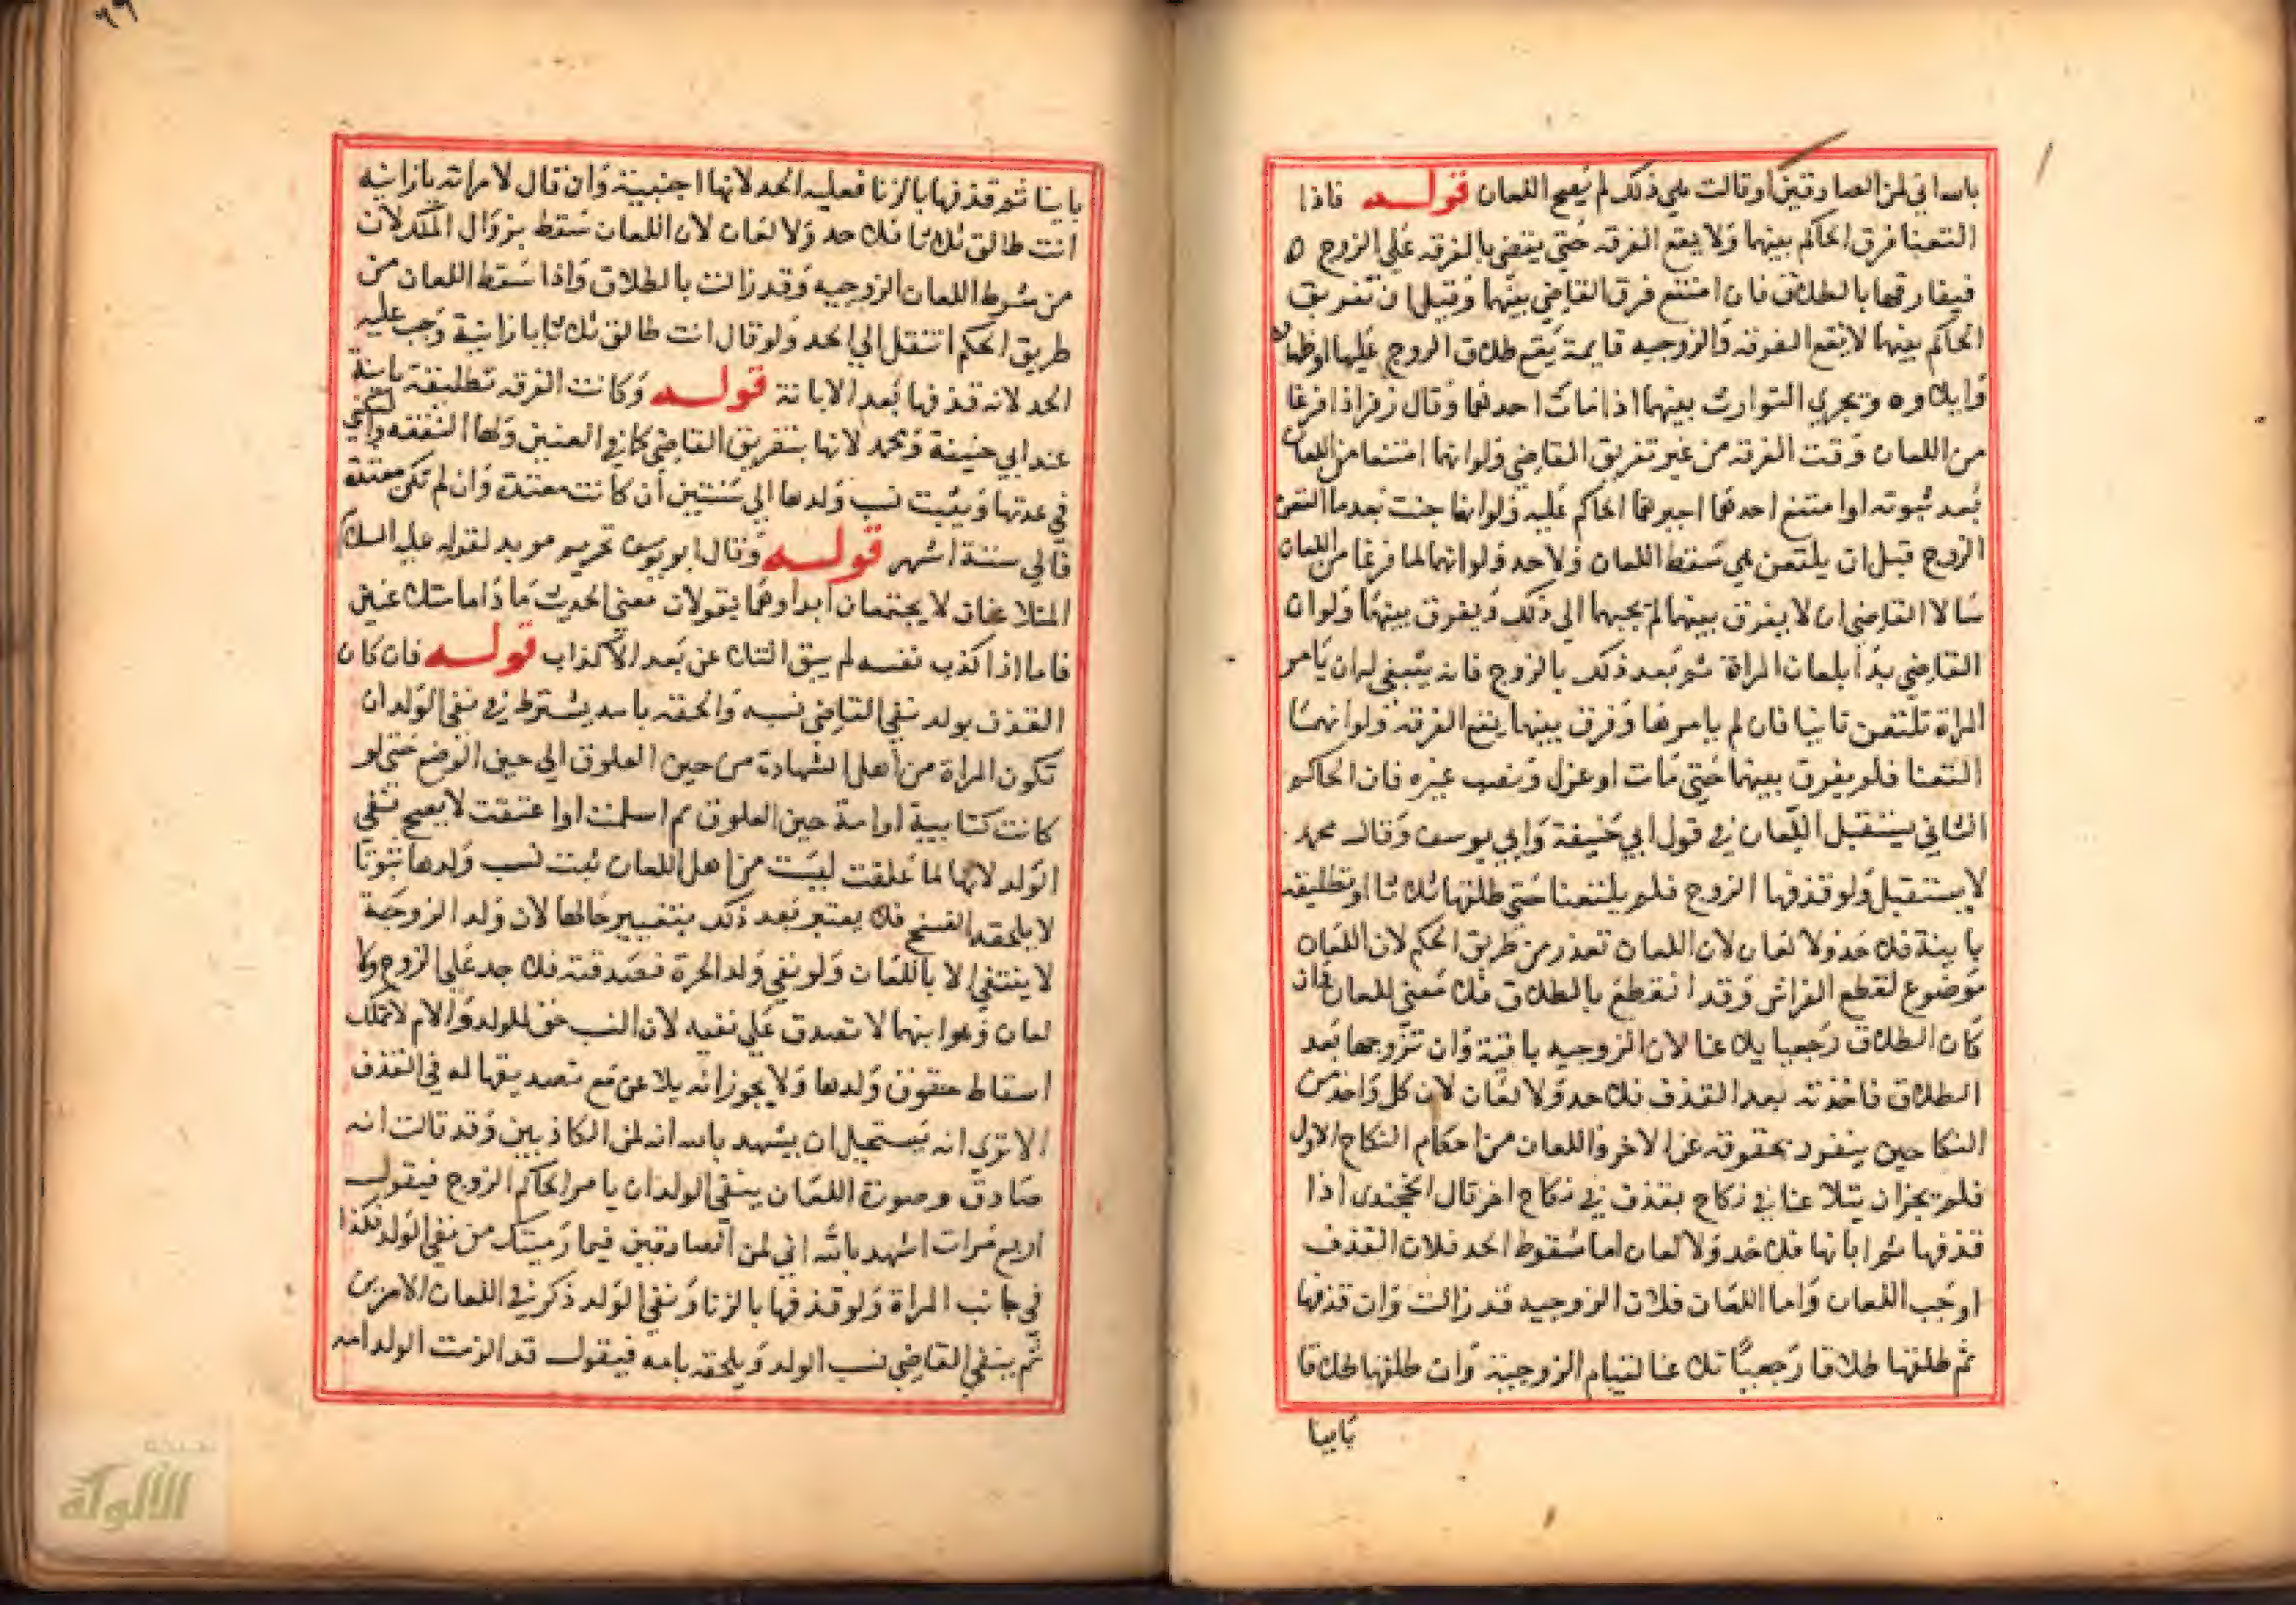 بالله اني لمن الصادقين او قالت هي ذلك لم يصح اللعان قوله فاذا
التعنا فرق الحاكم بينهما ولا يقع الفرقه حتي يقضي بالفرقه علي الزوج ٥
فيفارقها بالطلاق فان امتنع فرق القاضي بينهما وقبل ان تفريق
الحاكم بينهما لا يقع الفرقه والزوجيه قايمة يقع طلاق الزوج عليها وظهاره
وايلاوه ويجري التوارث بينهما اذا مات احدهما وقال زفر اذا فرغا
من اللعان وقت الفرقه من غير تفريق القاضي ولو انهما امتنعا من اللعان
بعد ثبوته او امتنع احدهما اجبرهما الحاكم عليه ولو انها جنت بعد ما التعن
الزوج قبل ان يلتعن هي سقط اللعان ولا حد ولو انهما لما فرغا من اللعان
سالا القاضي ان لا يفرق بينهما لم يجبهما الي ذلك ويفرق بينهما ولو ان
القاضي بدا بلعان المراة ثم بعد ذلك بالزوج فانه ينبغي له ان يامر
المراة تلتعن ثانيا فان لم يامرها وفرق بينهما يقع الفرقه ولو انهما
التعنا فلم يفرق بينهما حتي مات او عزل ونصب غيره فان الحاكم
الثاني يستقبل اللعان في قول ابي حنيفة وابي يوسف وقال محمد
لا يستقبل ولو قذفها الزوج فلم يلتعنا حتي طلقها ثلاثا او تطليقه
باينة فلا حد ولا لعان لان اللعان تعذر من طريق الحكم لان اللعان
موضوع لقطع الفراش وقد انقطع بالطلاق فلا معني للعان فان
كان الطلاق رجعيا يلاعنا لان الزوجيه باقية وان تزوجها بعد
الطلاق فاخذته بعد القذف فلا حد ولا لعان لان كل واحد من
النكاحين ينفرد بحقوقه عن الاخر واللعان من احكام النكاح الاول
فلم يجز ان يتلاعنا في نكاح بقذف في نكاح اخر قال الخجندي اذا
قذفها ثم ابانها فلا حد ولا لعان اما سقوط الحد فلان القذف
اوجب اللعان واما اللعان فلان الزوجيه قد زالت وان قذفها
ثم طلقها طلاقا رجعيا تلاعنا لقيام الزوجية وان طلقها طلاقا
باينا
٩٩
باينا ثم قذفها بالزنا فعليه الحد لانها اجنبية وان قال لامراته يا زانيه
انت طالق ثلاثا فلا حد ولا لعان لان اللعان سقط بزوال الملك لان
من شرط اللعان الزوجيه وقد زالت بالطلاق واذا سقط اللعان من
طريق الحكم انتقل الي الحد ولو قال انت طالق ثلاثا يا زانية وجب عليه
الحد لانه قذفها بعد الابانة قوله وكانت الفرقه تطليقة باينة
عند ابي حنيفة ومحمد لانها بتفريق القاضي كما في العنين ولها النفقه والسكني
في عدتها ويثبت نسب ولدها الي سنتين ان كانت معتدة وان لم تكن معتدة
فالي ستة اشهر قوله وقال ابو يوسف تحريم موبد لقوله عليه السلام
المتلاعنان لا يجتمعان ابدا وهما يقولان معني الحديث ماذا ما متلاعنين
فاما اذا اكذب نفسه لم يبق التلاعن بعد الاكذاب قوله فان كان
القذف بولد نفي القاضي نسبه والحقه بامه يشترط في نفي الولد ان
تكون المراة من اهل الشهادة من حين العلوق الي حين الوضع حتي لو
كانت كتابية او امة حين العلوق ثم اسلمت او اعتقت لا يصح نفي
الولد لانها لما علقت ليست من اهل اللعان ثبت نسب ولدها ثبوتا
لا يلحقه الفسخ فلا يعتبر بعد ذلك بتغيير حالها لان ولد الزوجة
لا ينتفي الا باللعان ولو نفي ولد الحرة فصدقته فلا حد علي الزوج ولا
لعان وهو ابنهما لا تصدق علي نفيه لان النسب حق للولد والام لا تملك
اسقاط حقوق ولدها ولا يجوز انه يلاعن مع تصديقها له في القذف
الا تري انه يستحيل ان يشهد بالله انه لمن الكاذبين وقد قالت انه
صادق وصورة اللعان بنفي الولد ان يامر الحاكم الزوج فيقول
اربع مرات اشهد بالله اني لمن الصادقين فيما رميتك من نفي الولد وكذا
في جانب المراة ولو قذفها بالزنا ونفي الولد ذكر في اللعان الامرين
ثم ينفي القاضي نسب الولد ويلحقه بامه فيقول قد الزمت الولد امه
الألوكة